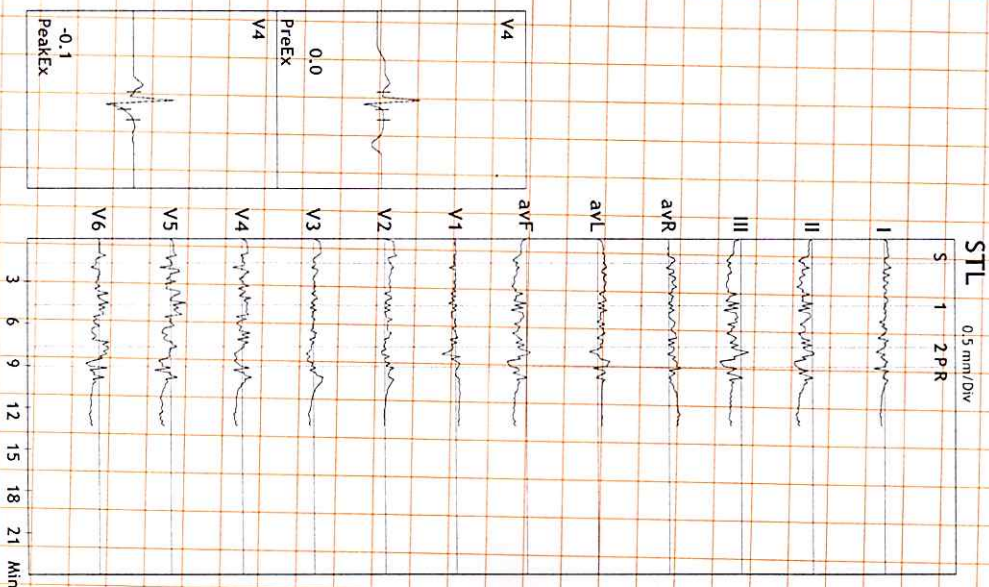 STL 0.5 mm/Div
S 1 2 P R
I
II
III
avR
avL
avF
V1
V2
V3
V4
V5
V6
3 6 9 12 15 18 21 Min
V4
0.0
PreEx
V4
-0.1
PeakEx